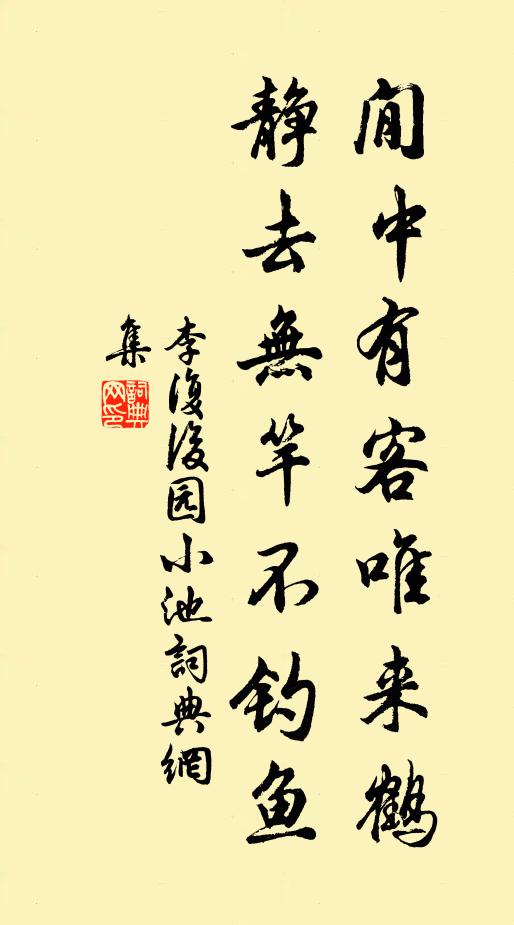 闲中有客唯来鹤
静去無竿不钓鱼
李復後园小池詞典網
集
詞典网印